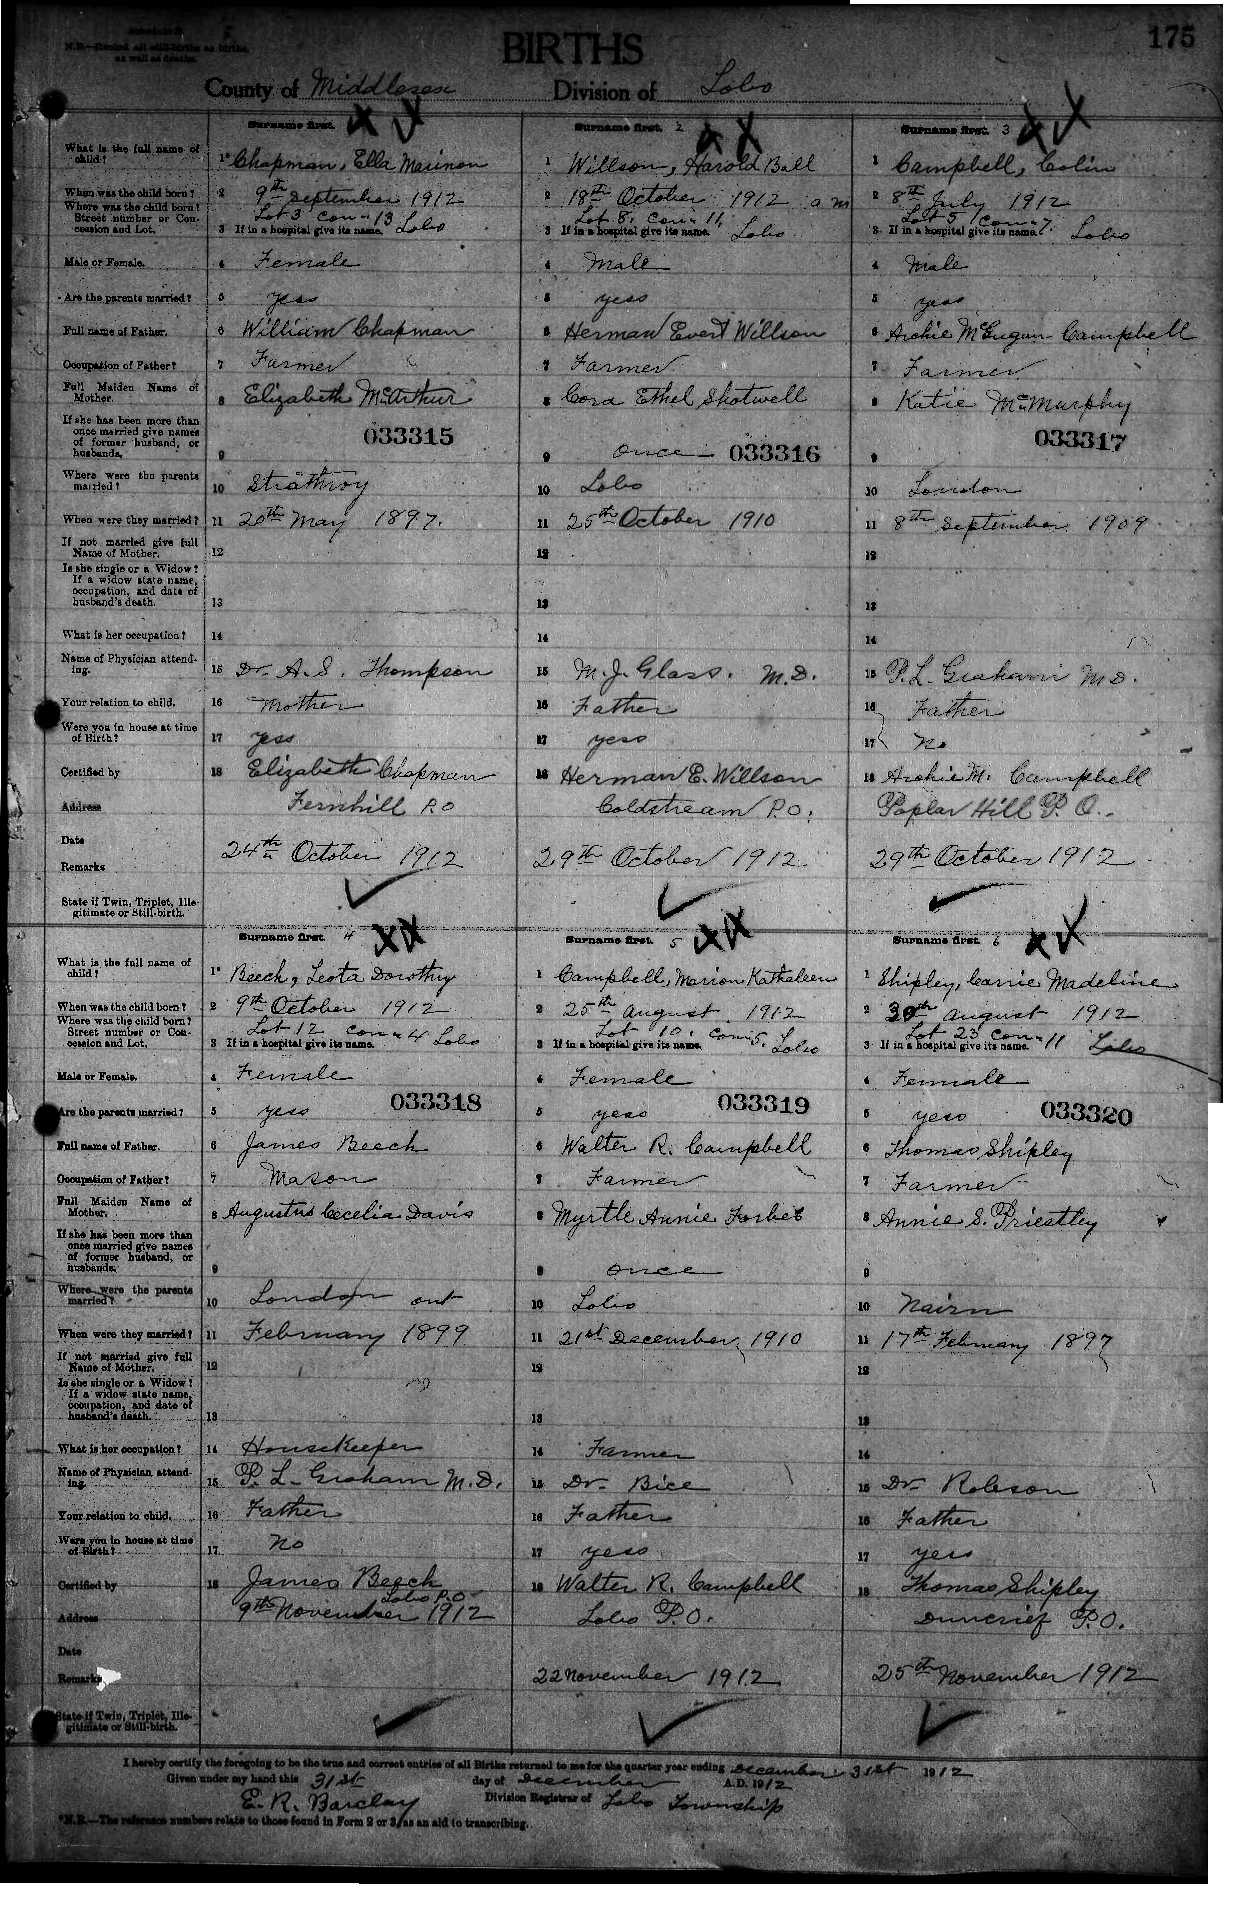 Schedule B
N.B.—Record all still-births as births,
as well as deaths.
BIRTHS
175
County of Middlesex Division of Lobo
Surname first. Surname first. 2 Surname first. 3
What is the full name of child? 1* Chapman, Ella Marinon 1 Willson, Harold Ball 1 Campbell, Colin
When was the child born? 2 9th September 1912 2 18th October 1912 a m 2 8th July 1912
Where was the child born? Lot 3 Con 13 Lot 8, Con 11, Lot 5 Con 7.
Street number or Concession and Lot. 3 If in a hospital give its name. Lobo 3 If in a hospital give its name. Lobo 3 If in a hospital give its name. Lobo
Male or Female. 4 Female 4 Male 4 Male
Are the parents married? 5 yess 5 yess 5 yess
Full name of Father. 6 William Chapman 6 Herman Evert Willson 6 Archie McGugan Campbell
Occupation of Father? 7 Farmer 7 Farmer 7 Farmer
Full Maiden Name of Mother. 8 Elizabeth McArthur 8 Cora Ethel Shotwell 8 Katie McMurphy
If she has been more than once married give names of former husband, or husbands. 9 033315 9 once 033316 9 033317
Where were the parents married? 10 Strathroy 10 Lobo 10 London
When were they married? 11 20th May 1897. 11 25th October 1910 11 8th September 1909
If not married give full Name of Mother. 12 12 12
Is she single or a Widow? If a widow state name, occupation, and date of husband's death. 13 13 13
What is her occupation? 14 14 14
Name of Physician attending. 15 Dr. A. S. Thompson 15 M. J. Glass. M.D. 15 P. L. Graham M D.
Your relation to child. 16 Mother 16 Father 16 Father
Were you in house at time of Birth? 17 yess 17 yess 17 No
Certified by 18 Elizabeth Chapman 18 Herman E. Willson 18 Archie M. Campbell
Address Fernhill P.O Coldstream P.O. Poplar Hill P. O.
Date
24th October 1912 29th October 1912 29th October 1912
Remarks
State if Twin, Triplet, Illegitimate or Still-birth.
Surname first. 4 Surname first. 5 Surname first. 6
What is the full name of child? 1* Beech, Leota Dorothy 1 Campbell, Marion Kathaleen 1 Shipley, Carrie Madeline
When was the child born? 2 9th October 1912 2 25th August 1912 2 30th August 1912
Where was the child born? Lot 12 Con 4 Lot 10. Con 5. Lot 23 Con 11
Street number or Concession and Lot. 3 If in a hospital give its name. Lobo 3 If in a hospital give its name. Lobo 3 If in a hospital give its name. Lobo
Male or Female. 4 Female 4 Female 4 Female
Are the parents married? 5 yess 033318 5 yess 033319 5 yess 033320
Full name of Father. 6 James Beech 6 Walter R. Campbell 6 Thomas Shipley
Occupation of Father? 7 Mason 7 Farmer 7 Farmer
Full Maiden Name of Mother. 8 Augustus Cecelia Davis 8 Myrtle Annie Forbes 8 Annie S. Priestley
If she has been more than once married give names of former husband, or husbands. 9 9 once 9
Where were the parents married? 10 London ont 10 Lobo 10 Nairn
When were they married? 11 February 1899 11 21st December, 1910 11 17th February 1897
If not married give full Name of Mother. 12 12 12
Is she single or a Widow? If a widow state name, occupation, and date of husband's death. 13 13 13
What is her occupation? 14 Housekeeper 14 Farmer 14
Name of Physician attending. 15 P. L. Graham M.D. 15 Dr. Bice 15 Dr. Robson
Your relation to child. 16 Father 16 Father 16 Father
Were you in house at time of Birth? 17 No 17 yess 17 yess
Certified by 18 James Beech 18 Walter R. Campbell 18 Thomas Shipley
Lobo P.O
Address 9th November 1912 Lobo P.O. Duncrief P.O.
Date
Remarks 22 November 1912 25th November 1912
State if Twin, Triplet, Illegitimate or Still-birth.
I hereby certify the foregoing to be the true and correct entries of all Births returned to me for the quarter year ending December 31st 1912
Given under my hand this 31st day of December A.D. 1912
E. R. Barclay Division Registrar of Lobo Township
*N.B.—The reference numbers relate to those found in Form 2 or 3, as an aid to transcribing.